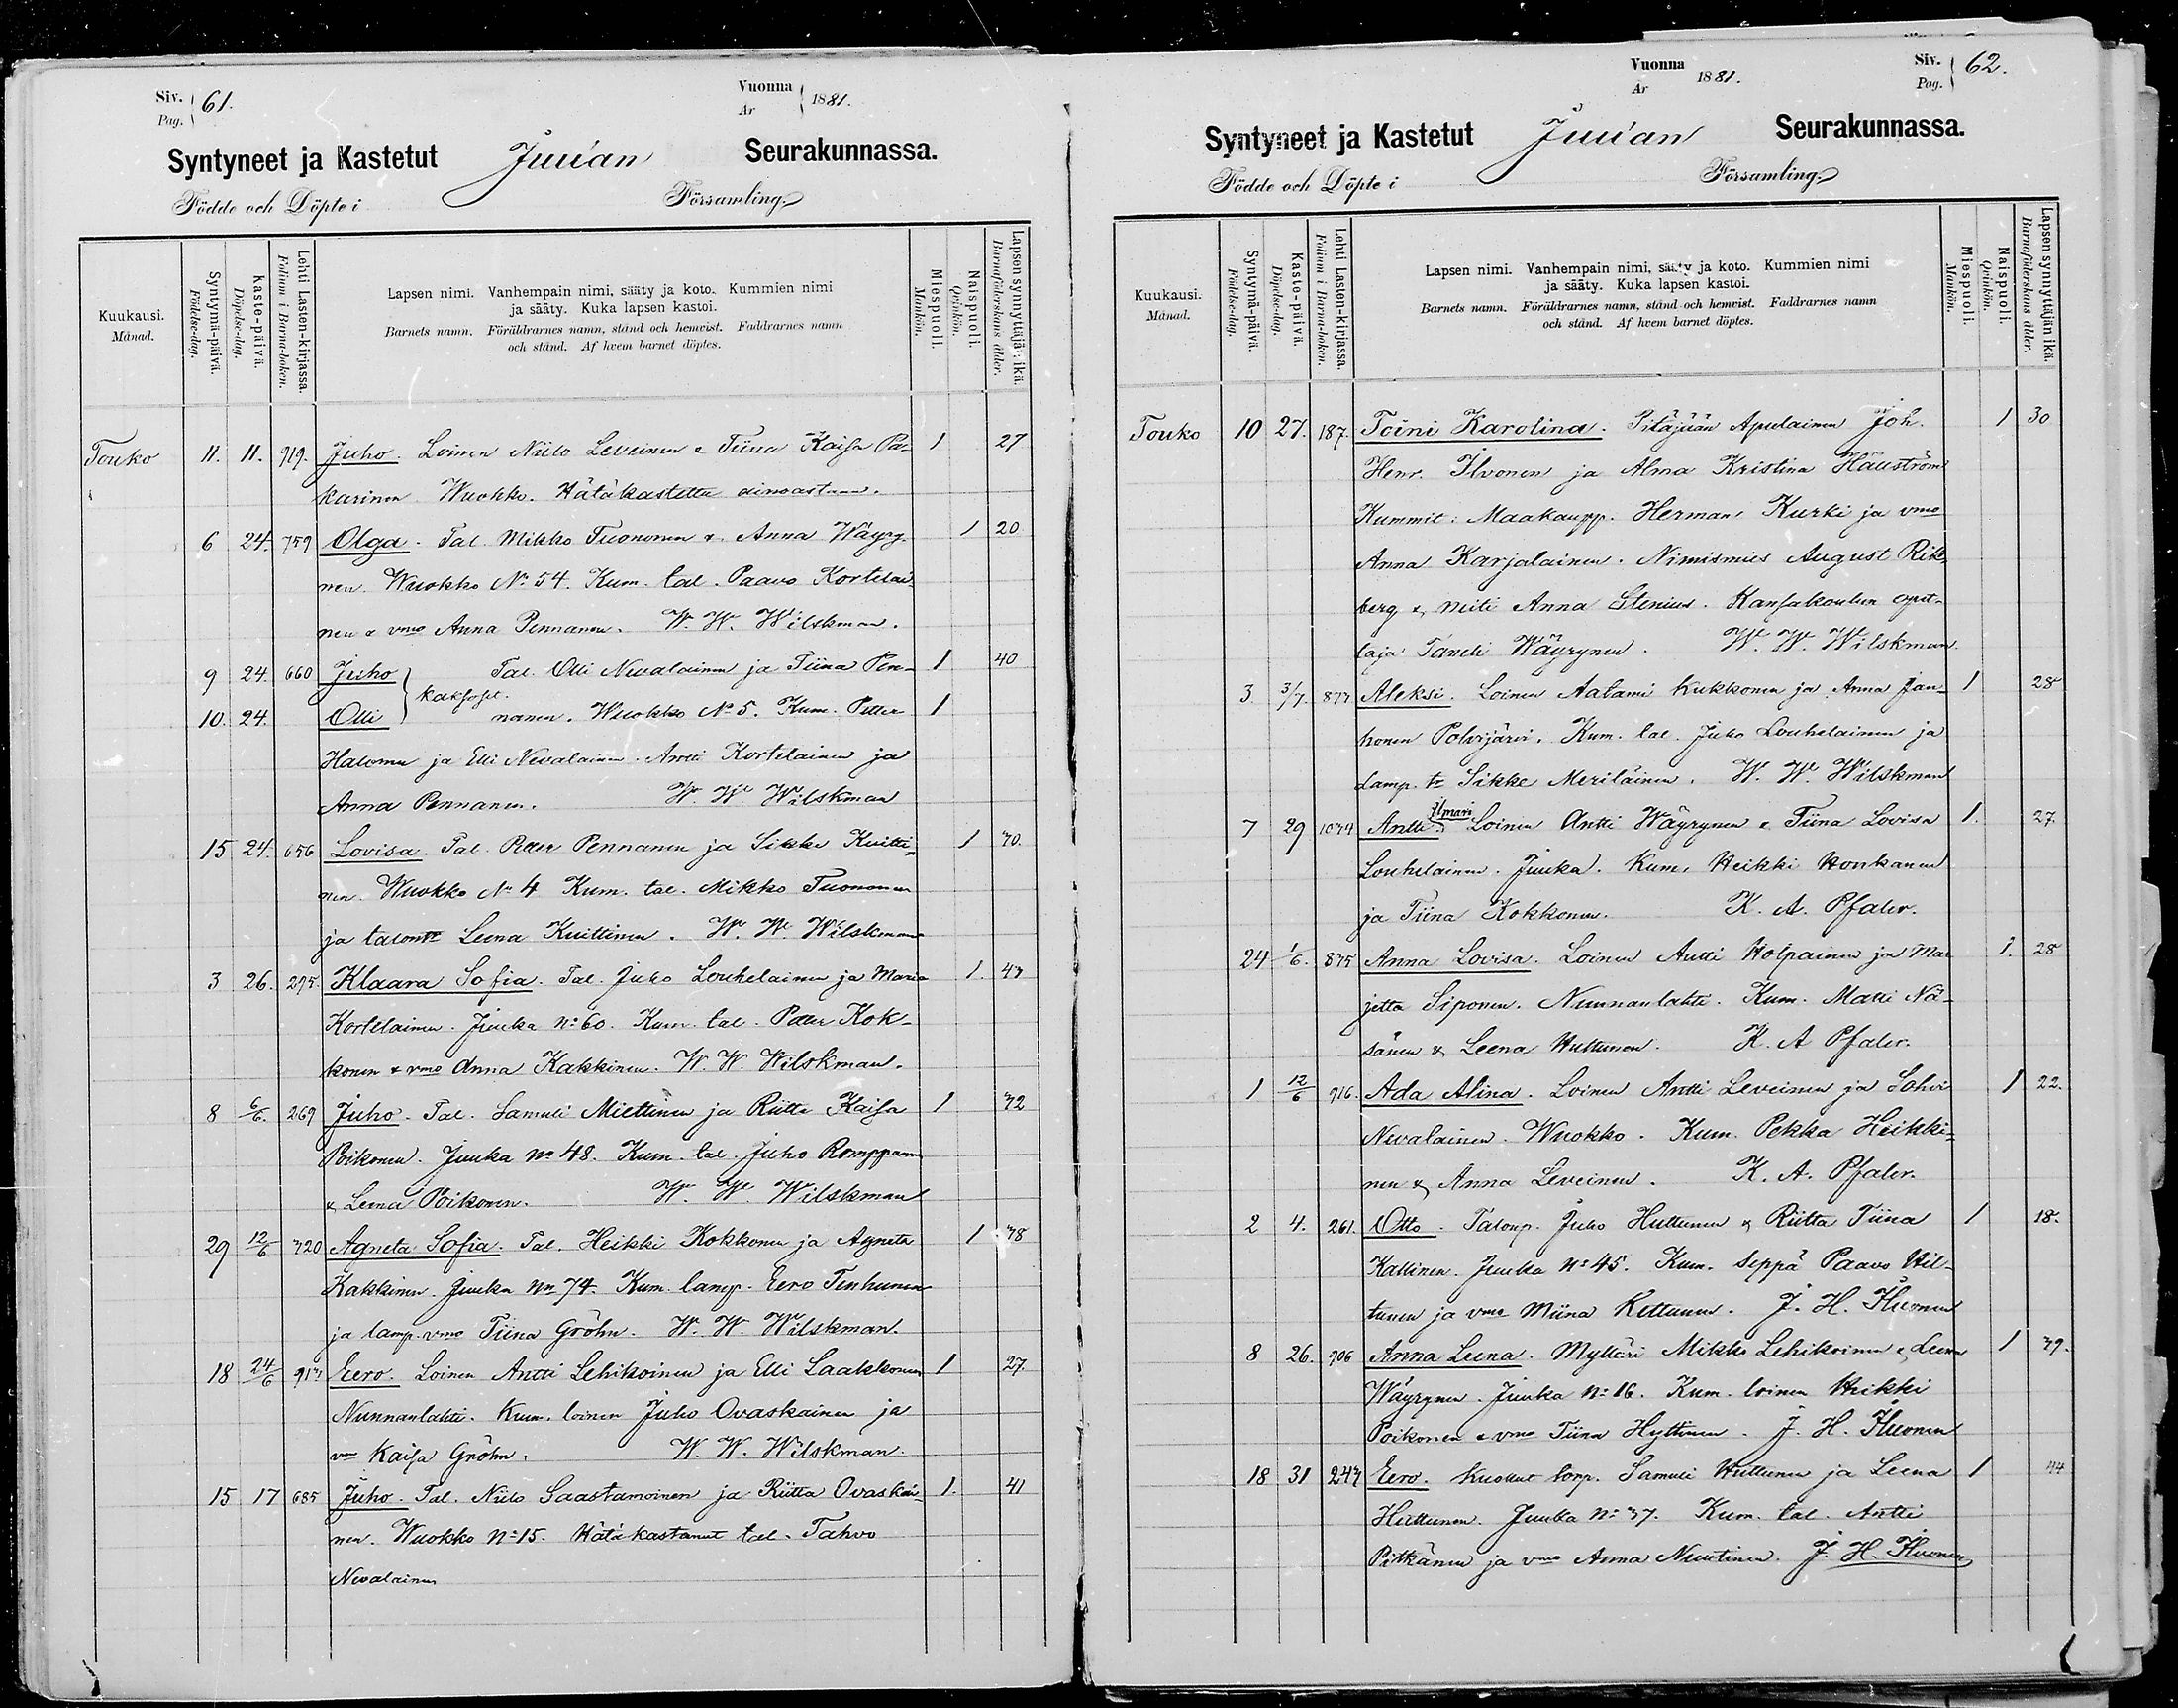 Siv. 61.
Pag.
Vuonna 1881.
Ar
Syntyneet ja Kastetut Juuan Seurakunnassa.
Födde och Döpte i Församling.
Kuukausi.
Månad.
Syntymä-päivä.
Födelse-dag.
Kaste-päivä.
Döpelse-dag.
Lehti Lasten-kirjassa.
Folium i Barna-boken.
Lapsen nimi. Vanhempain nimi, sääty ja koto. Kummien nimi
ja sääty. Kuka lapsen kastoi.
Barnets namn. Föräldrarnes namn, stånd och hemvist. Faddrarnes namn
och stånd. Af hvem barnet döptes.
Miespuoli.
Mankön.
Naispuoli.
Qvinkön.
Lapsen synnyttäjän ikä.
Barnaföderskans ålder.
Touko 11. 11. 919. Juho. Loinen Niilo Leveinen & Tiina Kaisa Pa- 1 27
karinen Wuokko. Hätäkastettu ainoastaan.
6 24. 759 Olga. Tal. Mikko Tuononen & Anna Wäyry- 1 20
nen. Wuokko No 54. Kum. tal. Paavo Kortelai-
nen & vmo Anna Pennanen. W. W. Wilskman.
9 24. 660 Juho Tal. Olli Nevalainen ja Tiina Pen- 1 40
kaksoset.
10. 24. Olli nanen. Wuokko No 5. Kum. Petter 1
Halonen ja Elli Nevalainen. Antti Kortelainen ja
Anna Pennanen. W. W. Wilskman
15 24. 656 Lovisa. Tal. Petter Pennanen ja Sikke Kuitti- 1 30.
nen. Wuokko No 4 Kum. tal. Mikko Tuononen
ja talontr Leena Kuittinen. W. W. Wilskman
3 26. 275. Klaara Sofia. Tal. Juho Louhelainen ja Maria 1. 43
Kortelainen. Juuka No 60. Kum. tal. Petter Kok-
konen & vmo Anna Kakkinen. W. W. Wilskman.
8 6/6. 269 Juho. Tal. Samuli Miettinen ja Riitta Kaisa 1 32
Poikonen. Juuka No 48. Kum. tal. Juho Romppanen
& Leena Poikonen. W. W. Wilskman
29 12/6. 320 Agneta Sofia. Tal. Heikki Kokkonen ja Agneta 1 38
Kakkinen. Juuka No 74. Kum. lamp. Eero Tenhunen
ja lamp. vmo Tiina Gröhn. W. W. Wilskman.
18 24/6 913 Eero. Loinen Antti Lehikoinen ja Elli Laakkonen 1 27
Nunnanlahti. Kum. loinen Juho Ovaskainen ja
vm Kaisa Gröhn. W. W. Wilskman.
15 17 685 Juho. Tal. Niilo Saastamoinen ja Riitta Ovaskai- 1. 41
nen. Wuokko No 15. Hätäkastanut tal. Tahvo
Nevalainen
Vuonna 1881.
Ar
Siv. 62.
Pag.
Syntyneet ja Kastetut Juuan Seurakunnassa.
Födde och Döpte i Församling.
Kuukausi.
Månad.
Syntymä-päivä.
Födelse-dag.
Kaste-päivä.
Döpelse-dag.
Lehti Lasten-kirjassa.
Folium i Barna-boken.
Lapsen nimi. Vanhempain nimi, sääty ja koto. Kummien nimi
ja sääty. Kuka lapsen kastoi.
Barnets namn. Föräldrarnes namn, stånd och hemvist. Faddrarnes namn
och stånd. Af hvem barnet döptes.
Miespuoli.
Mankön.
Naispuoli.
Qvinkön.
Lapsen synnyttäjän ikä.
Barnaföderskans ålder.
Touko 10 27. 187. Toini Karolina. Pitäjään Apulainen Joh. 1 30
Henr. Ilvonen ja Alma Kristina
Kummit: Maakaupp. Herman Kurki ja vmo
Anna Karjalainen. Nimismies August Rik-
berg & neiti Anna Stenius. Kansakoulun opet-
taja Taneli Wäyrynen. W. W. Wilskman.
3. 3/7. 877 Aleksi. Loinen Aatami Kukkonen ja Anna Jan- 1 28
honen Polvijärvi. Kum. tal. Juho Louhelainen ja
Lamp. tr Sikke Meriläinen. W. W. Wilskman
7 29 1074 Antti Ilmari. Loinen Antti Wäyrynen & Tiina Lovisa 1. 27.
Louhelainen. Juuka. Kum. Heikki Honkanen
ja Tiina Kokkonen. K. A. Pfaler.
24 1/6. 875 Anna Lovisa. Loinen Antti Holpainen ja Mar 1. 28
jetta Siponen. Nunnanlahti. Kum. Matti Nä-
sänen & Leena Huttunen. K. A Pfaler.
1 12/6 916. Ada Alina. Loinen Antti Leveinen ja Sohvi 1 22.
Nevalainen. Wuokko. Kum. Pekka Heikki-
nen & Anna Leveinen. K. A. Pfaler.
2 4. 261. Otto. Talonp. Juho Huttunen & Riitta Tiina 1 18.
Kallinen. Juuka No 45. Kum. Seppä Paavo Hil-
tunen ja vmo Miina Kettunen. J. H. Ilvonen
8 26. 906 Anna Leena. Mylläri Mikko Lehikoinen & Leena 1 39.
Wäyrynen. Juuka No 16. Kum. loinen Heikki
Poikonen & vmo Tiina Hyttinen. J. H. Ilvonen
18 31 243 Eero. Kuollut torp. Samuli Huttunen ja Leena 1 44
Huttunen. Juuka No 37. Kum. tal. Antti
Pitkänen ja vmo Anna Nuutinen. J. H. Ilvonen